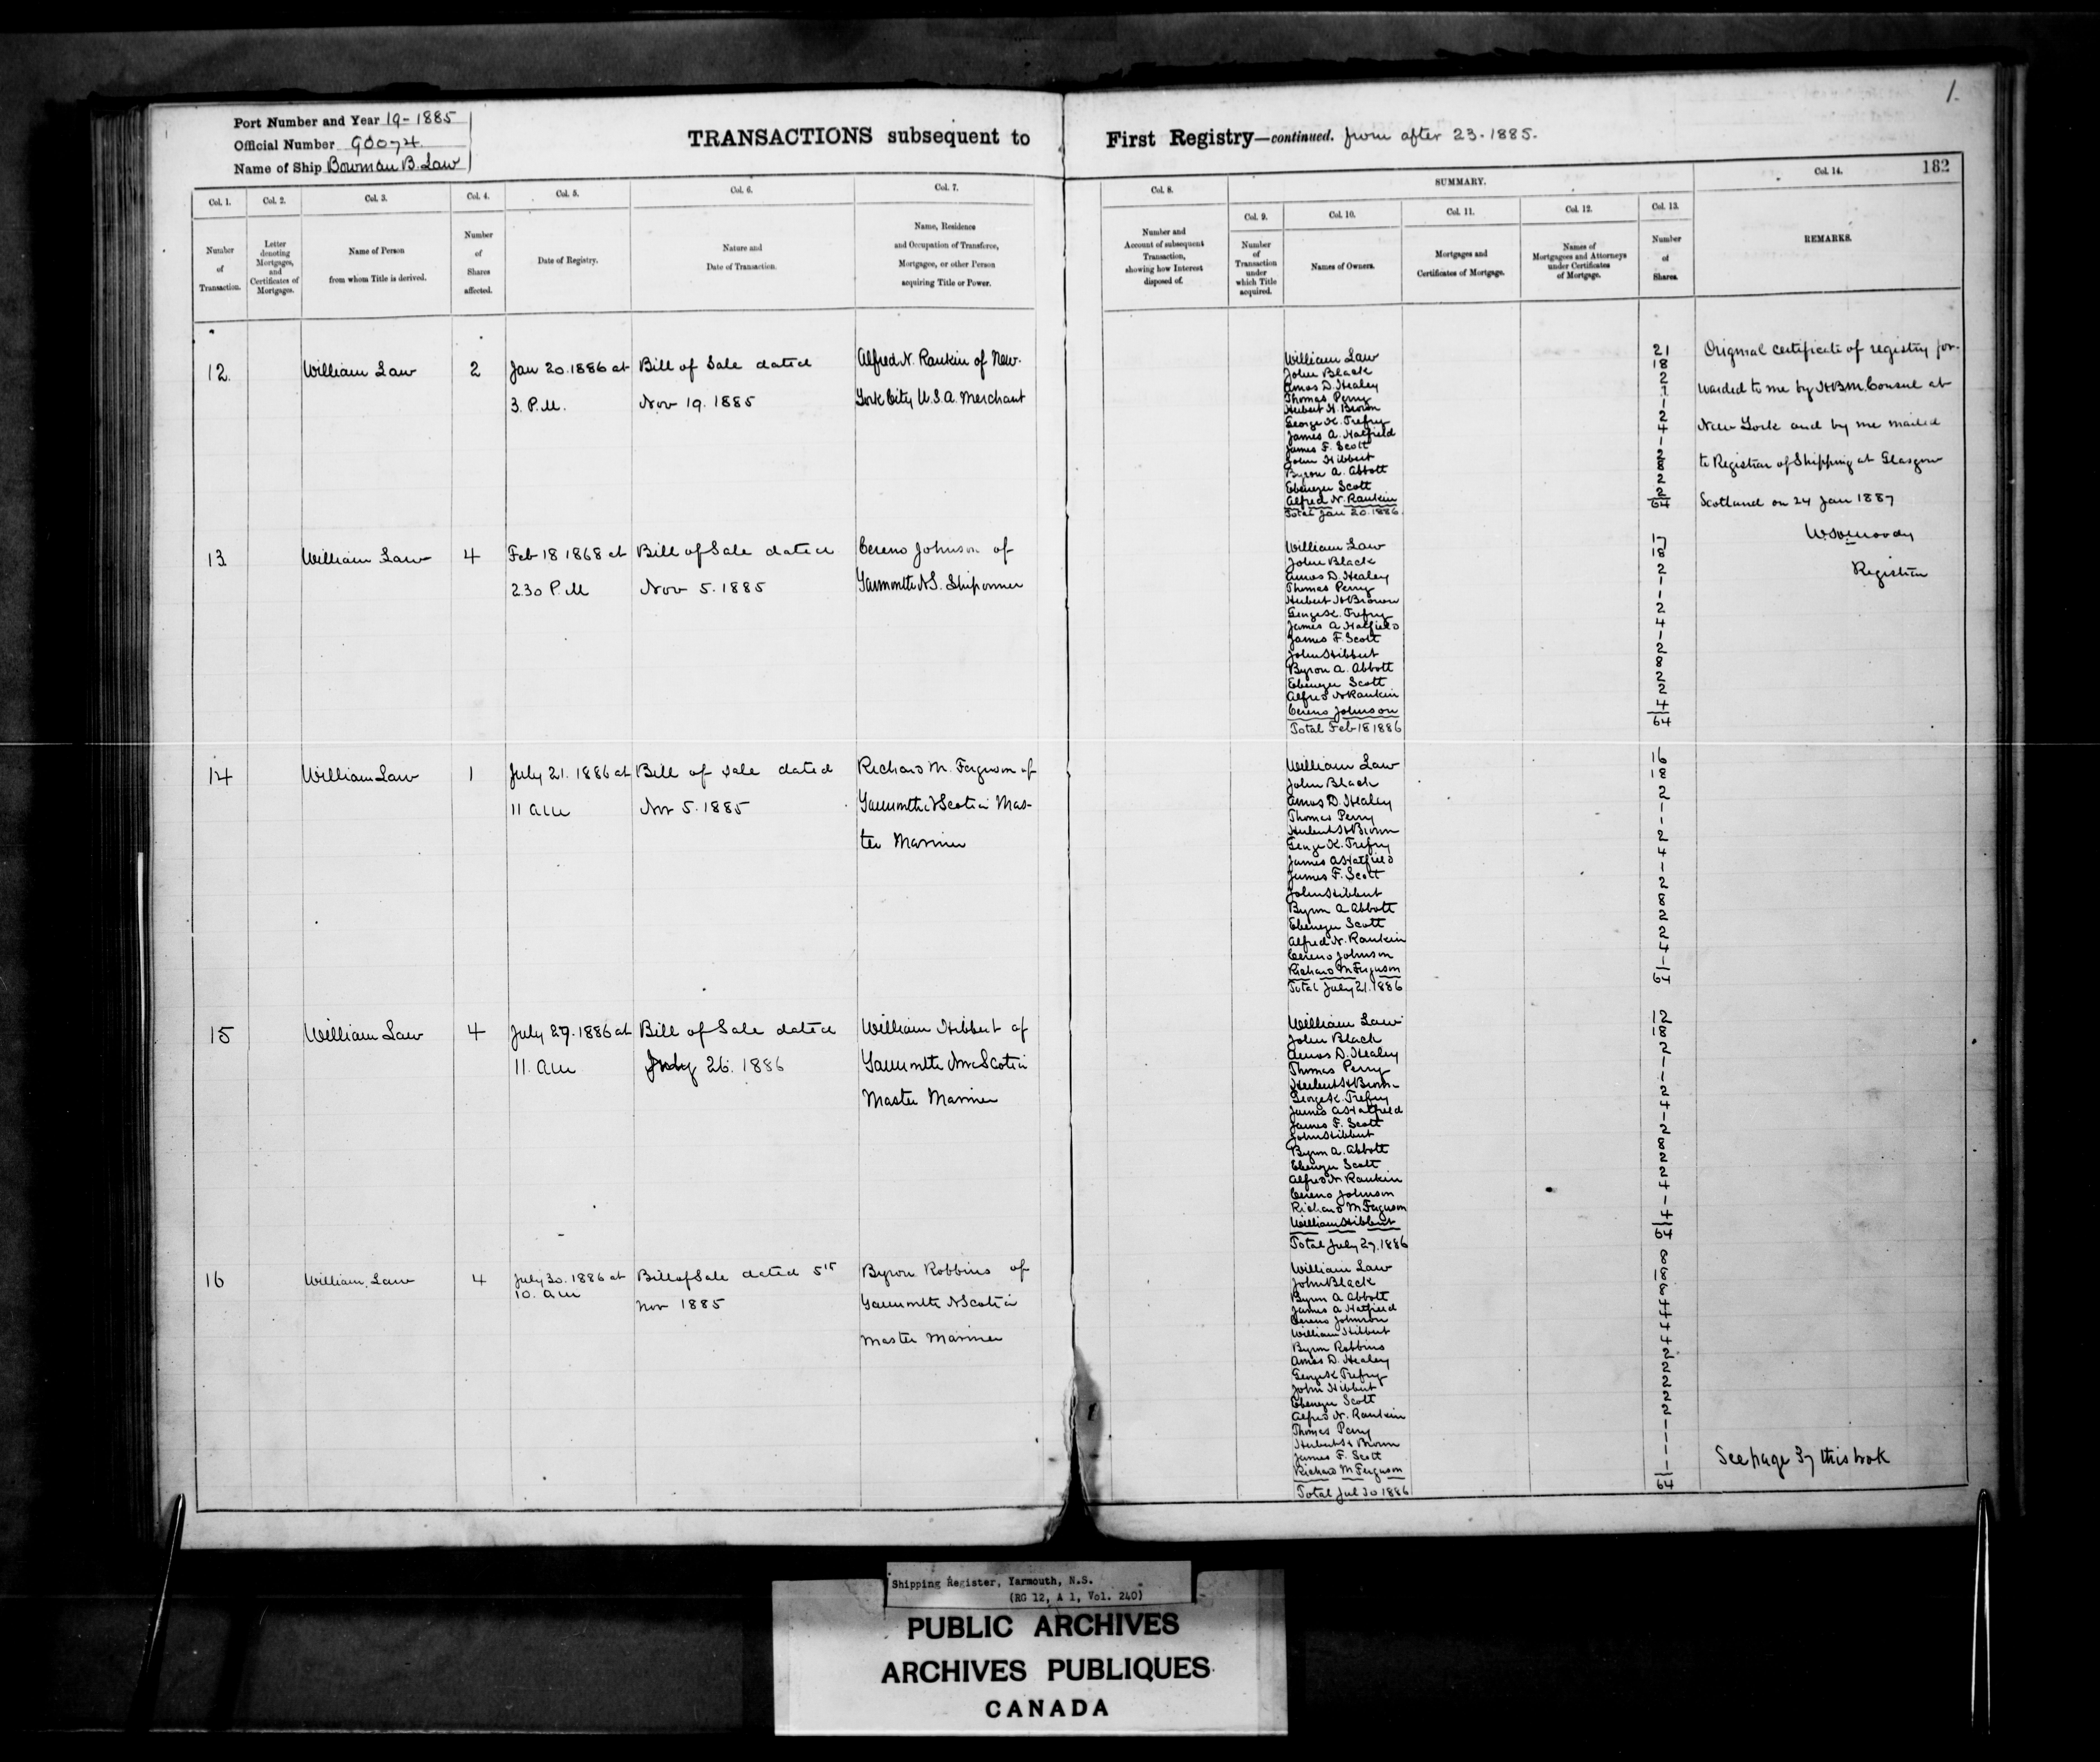 1.
Port Number and Year 19-1885
Official Number 90074
Name of Ship Bowman B. Law
TRANSACTIONS subsequent to First Registry—continued. from after 23.1885.
182
Col. 1.
Col. 2.
Col. 3.
Col. 4.
Col. 5.
Col. 6.
Col. 7.
Col. 8.
SUMMARY.
Col. 9.
Col. 10.
Col. 11.
Col. 12.
Col. 13.
Col. 14.
Number
of
Transaction.
Letter
denoting
Mortgages,
and
Certificates of
Mortgages.
Name of Person
from whom Title is derived.
Number
of
Shares
affected.
Date of Registry.
Nature and
Date of Transaction.
Name, Residence
and Occupation of Transferee,
Mortgagee, or other Person
acquiring Title or Power.
Number and
Account of subsequent
Transaction,
showing how Interest
disposed of.
Number
of
Transaction
under
which Title
acquired.
Names of Owners.
Mortgages and
Certificates of Mortgage.
Names of
Mortgagees and Attorneys
under Certificates
of Mortgage.
Number
of
Shares.
REMARKS.
12.
William Law
2
Jan 20.1886 at
3. P.M.
Bill of Sale dated
Nov 19. 1885
Alfred N. Rankin of New-
York City U.S.A. Merchant
William Law 21
John Black 18
Amos D. Healey 2
Thomas Perry 1
Hubert H. Brown 1
George K. Trefry 2
James A. Hatfield 4
James F. Scott 1
John Hibbert 2
Byron A. Abbott 8
Ebenezer Scott 2
Alfred N. Rankin 2
Total Jan 20.1886 64
Original certificate of registry for-
warded to me by H.B.M. Consul at
New York and by me mailed
to Registrar of Shipping at Glasgow
Scotland on 24 Jan 1887
W.H. Moody
Registrar
13
William Law
4
Feb 18 1868 at
2.30 P.M
Bill of Sale dated
Nov 5. 1885
Cereno Johnson of
Yarmouth N.S. Shipowner
William Law 17
John Black 18
Amos D. Healey 2
Thomas Perry 1
Hubert H Brown 1
George K. Trefry 2
James A Hatfield 4
James F. Scott 1
John Hibbert 2
Byron A. Abbott 8
Ebenezer Scott 2
Alfred N Rankin 2
Cereno Johnson 4
Total Feb 18 1886 64
14
William Law
1
July 21. 1886 at
11 am
Bill of sale dated
Nov 5. 1885
Richard M. Ferguson of
Yarmouth N Scotia Mas-
ter Mariner
William Law 16
John Black 18
Amos D. Healey 2
Thomas Perry 1
Hubert H Brown 1
George K. Trefry 2
James A Hatfield 4
James F. Scott 1
John Hibbert 2
Byron A Abbott 8
Ebenezer Scott 2
Alfred N. Rankin 2
Cereno Johnson 4
Richard M Ferguson 1
Total July 21. 1886 64
15
William Law
4
July 27. 1886 at
11. am
Bill of Sale dated
July 26. 1886
William Hibbert of
Yarmouth Nva Scotia
Master Mariner
William Law 12
John Black 18
Amos D. Healey 2
Thomas Perry 1
Hubert H Brown 1
George K. Trefry 2
James A Hatfield 4
James F. Scott 1
John Hibbert 2
Byron A. Abbott 8
Ebenezer Scott 2
Alfred N Rankin 2
Cereno Johnson 4
Richard M Ferguson 1
William Hibbert 4
Total July 27. 1886 64
16
William Law
4
July 30. 1886 at
10. am
Bill of Sale dated 5th
Nov 1885
Byron Robbins of
Yarmouth N Scotia
Master Mariner
William Law 8
John Black 18
Byron A Abbott 8
James A Hatfield 4
Cereno Johnson 4
William Hibbert 4
Byron Robbins 4
Amos D. Healey 2
George K Trefry 2
John Hibbert 2
Ebenezer Scott 2
Alfred N. Rankin 2
Thomas Perry 1
Hubert H Brown 1
James F. Scott 1
Richard M Ferguson 1
Total Jul 30 1886 64
See page 37 this book
Shipping Register, Yarmouth, N.S.
(RG 12, A 1, Vol. 240)
PUBLIC ARCHIVES
ARCHIVES PUBLIQUES
CANADA